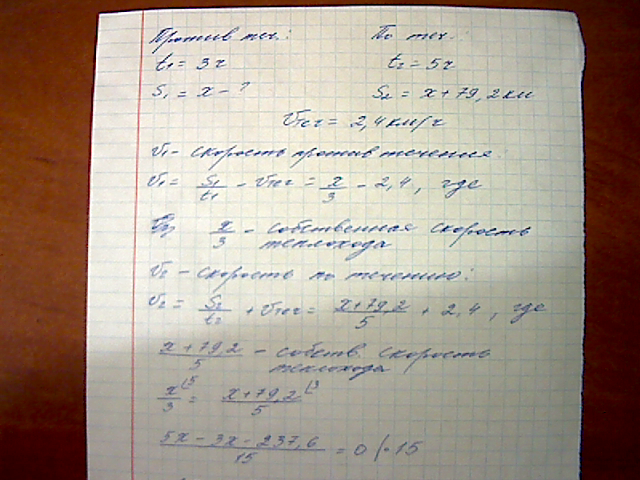 Против теч.: По теч.:
t₁ = 3ч t₂ = 5ч
S₁ = x - ? S₂ = x + 79,2 км
Vтеч = 2,4 км/ч
V₁ - скорость против течения.
V₁ = S₁/t₁ - Vтеч = x/3 - 2,4, где
x/3 - собственная скорость
теплохода
V₂ - скорость по течению:
V₂ = S₂/t₂ + Vтеч = x+79,2/5 + 2,4, где
x+79,2/5 - собств. скорость
теплохода
x/3 ⁽⁵ = x+79,2/5 ⁽³
5x - 3x - 237,6/15 = 0 /·15